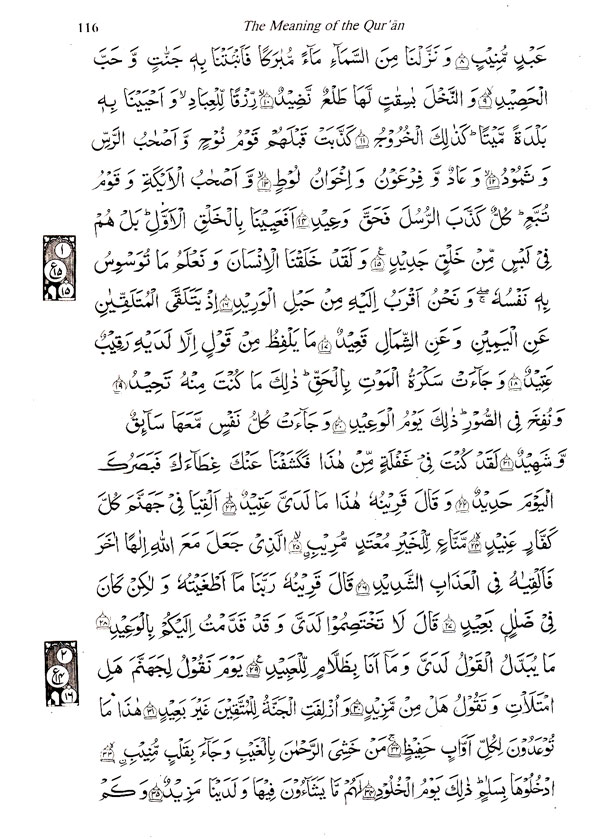 116
The Meaning of the Qur'ān
عَبْدٍ مُّنِيْبٍ ﴿۸﴾ وَ نَزَّلْنَا مِنَ السَّمَآءِ مَآءً مُّبٰرَكًا فَاَنْۢبَتْنَا بِهٖ جَنّٰتٍ وَّ حَبَّ
الْحَصِيْدِ ﴿۹﴾ وَ النَّخْلَ بٰسِقٰتٍ لَّهَا طَلْعٌ نَّضِيْدٌ ﴿۱۰﴾ رِّزْقًا لِّلْعِبَادِ ۙ وَ اَحْيَيْنَا بِهٖ
بَلْدَةً مَّيْتًا ؕ كَذٰلِكَ الْخُرُوْجُ ﴿۱۱﴾ كَذَّبَتْ قَبْلَهُمْ قَوْمُ نُوْحٍ وَّ اَصْحٰبُ الرَّسِّ
وَ ثَمُوْدُ ﴿۱۲﴾ وَ عَادٌ وَّ فِرْعَوْنُ وَ اِخْوَانُ لُوْطٍ ﴿۱۳﴾ وَّ اَصْحٰبُ الْاَيْكَةِ وَ قَوْمُ
تُبَّعٍ ؕ كُلٌّ كَذَّبَ الرُّسُلَ فَحَقَّ وَعِيْدِ ﴿۱۴﴾ اَفَعَيِيْنَا بِالْخَلْقِ الْاَوَّلِ ؕ بَلْ هُمْ
فِيْ لَبْسٍ مِّنْ خَلْقٍ جَدِيْدٍ ﴿۱۵﴾ وَ لَقَدْ خَلَقْنَا الْاِنْسَانَ وَ نَعْلَمُ مَا تُوَسْوِسُ
بِهٖ نَفْسُهٗ ۖۚ وَ نَحْنُ اَقْرَبُ اِلَيْهِ مِنْ حَبْلِ الْوَرِيْدِ ﴿۱۶﴾ اِذْ يَتَلَقَّى الْمُتَلَقِّيٰنِ
عَنِ الْيَمِيْنِ وَ عَنِ الشِّمَالِ قَعِيْدٌ ﴿۱۷﴾ مَا يَلْفِظُ مِنْ قَوْلٍ اِلَّا لَدَيْهِ رَقِيْبٌ
عَتِيْدٌ ﴿۱۸﴾ وَ جَآءَتْ سَكْرَةُ الْمَوْتِ بِالْحَقِّ ؕ ذٰلِكَ مَا كُنْتَ مِنْهُ تَحِيْدُ ﴿۱۹﴾
وَ نُفِخَ فِي الصُّوْرِ ؕ ذٰلِكَ يَوْمُ الْوَعِيْدِ ﴿۲۰﴾ وَ جَآءَتْ كُلُّ نَفْسٍ مَّعَهَا سَآئِقٌ
وَّ شَهِيْدٌ ﴿۲۱﴾ لَقَدْ كُنْتَ فِيْ غَفْلَةٍ مِّنْ هٰذَا فَكَشَفْنَا عَنْكَ غِطَآءَكَ فَبَصَرُكَ
الْيَوْمَ حَدِيْدٌ ﴿۲۲﴾ وَ قَالَ قَرِيْنُهٗ هٰذَا مَا لَدَيَّ عَتِيْدٌ ﴿۲۳﴾ اَلْقِيَا فِيْ جَهَنَّمَ كُلَّ
كَفَّارٍ عَنِيْدٍ ﴿۲۴﴾ مَّنَّاعٍ لِّلْخَيْرِ مُعْتَدٍ مُّرِيْبِ ﴿۲۵﴾ الَّذِيْ جَعَلَ مَعَ اللّٰهِ اِلٰهًا اٰخَرَ
فَاَلْقِيٰهُ فِي الْعَذَابِ الشَّدِيْدِ ﴿۲۶﴾ قَالَ قَرِيْنُهٗ رَبَّنَا مَاۤ اَطْغَيْتُهٗ وَ لٰكِنْ كَانَ
فِيْ ضَلٰلٍۭ بَعِيْدٍ ﴿۲۷﴾ قَالَ لَا تَخْتَصِمُوْا لَدَيَّ وَ قَدْ قَدَّمْتُ اِلَيْكُمْ بِالْوَعِيْدِ ﴿۲۸﴾
مَا يُبَدَّلُ الْقَوْلُ لَدَيَّ وَ مَاۤ اَنَا بِظَلَّامٍ لِّلْعَبِيْدِ ﴿۲۹﴾ يَوْمَ نَقُوْلُ لِجَهَنَّمَ هَلِ
امْتَلَاْتِ وَ تَقُوْلُ هَلْ مِنْ مَّزِيْدٍ ﴿۳۰﴾ وَ اُزْلِفَتِ الْجَنَّةُ لِلْمُتَّقِيْنَ غَيْرَ بَعِيْدٍ ﴿۳۱﴾ هٰذَا مَا
تُوْعَدُوْنَ لِكُلِّ اَوَّابٍ حَفِيْظٍ ﴿۳۲﴾ مَنْ خَشِيَ الرَّحْمٰنَ بِالْغَيْبِ وَ جَآءَ بِقَلْبٍ مُّنِيْبِ ﴿۳۳﴾
ادْخُلُوْهَا بِسَلٰمٍ ؕ ذٰلِكَ يَوْمُ الْخُلُوْدِ ﴿۳۴﴾ لَهُمْ مَّا يَشَآءُوْنَ فِيْهَا وَ لَدَيْنَا مَزِيْدٌ ﴿۳۵﴾ وَ كَمْ
۱
ع
۱۵
۱۵
۲
ع
۱۴
۱۶